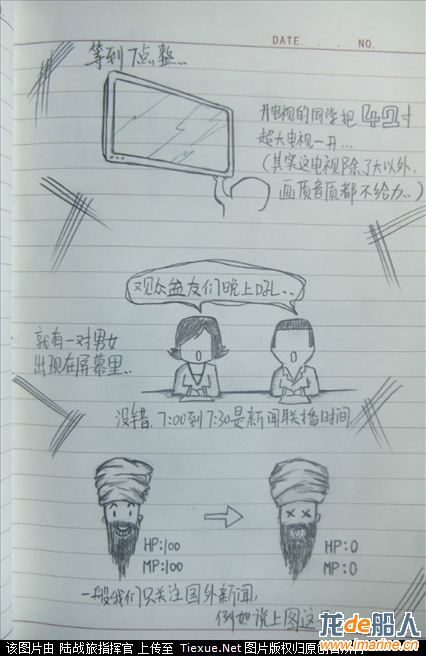 DATE. . . NO.
等到7点整...
开电视的同学把42寸
超大电视一开...
(其实这电视除了大以外,
画质音质都不给力..)
观众盆友们晚上好..
就有一对男女
出现在屏幕里..
没错,7:00到7:30是新闻联播时间
HP:100
MP:100
HP:0
MP:0
一般我们只关注国外新闻,
例如说上图这
龙de船人
www.imarine.cn
该图片由 陆战旅指挥官 上传至 Tiexue.Net 图片版权归原创者所